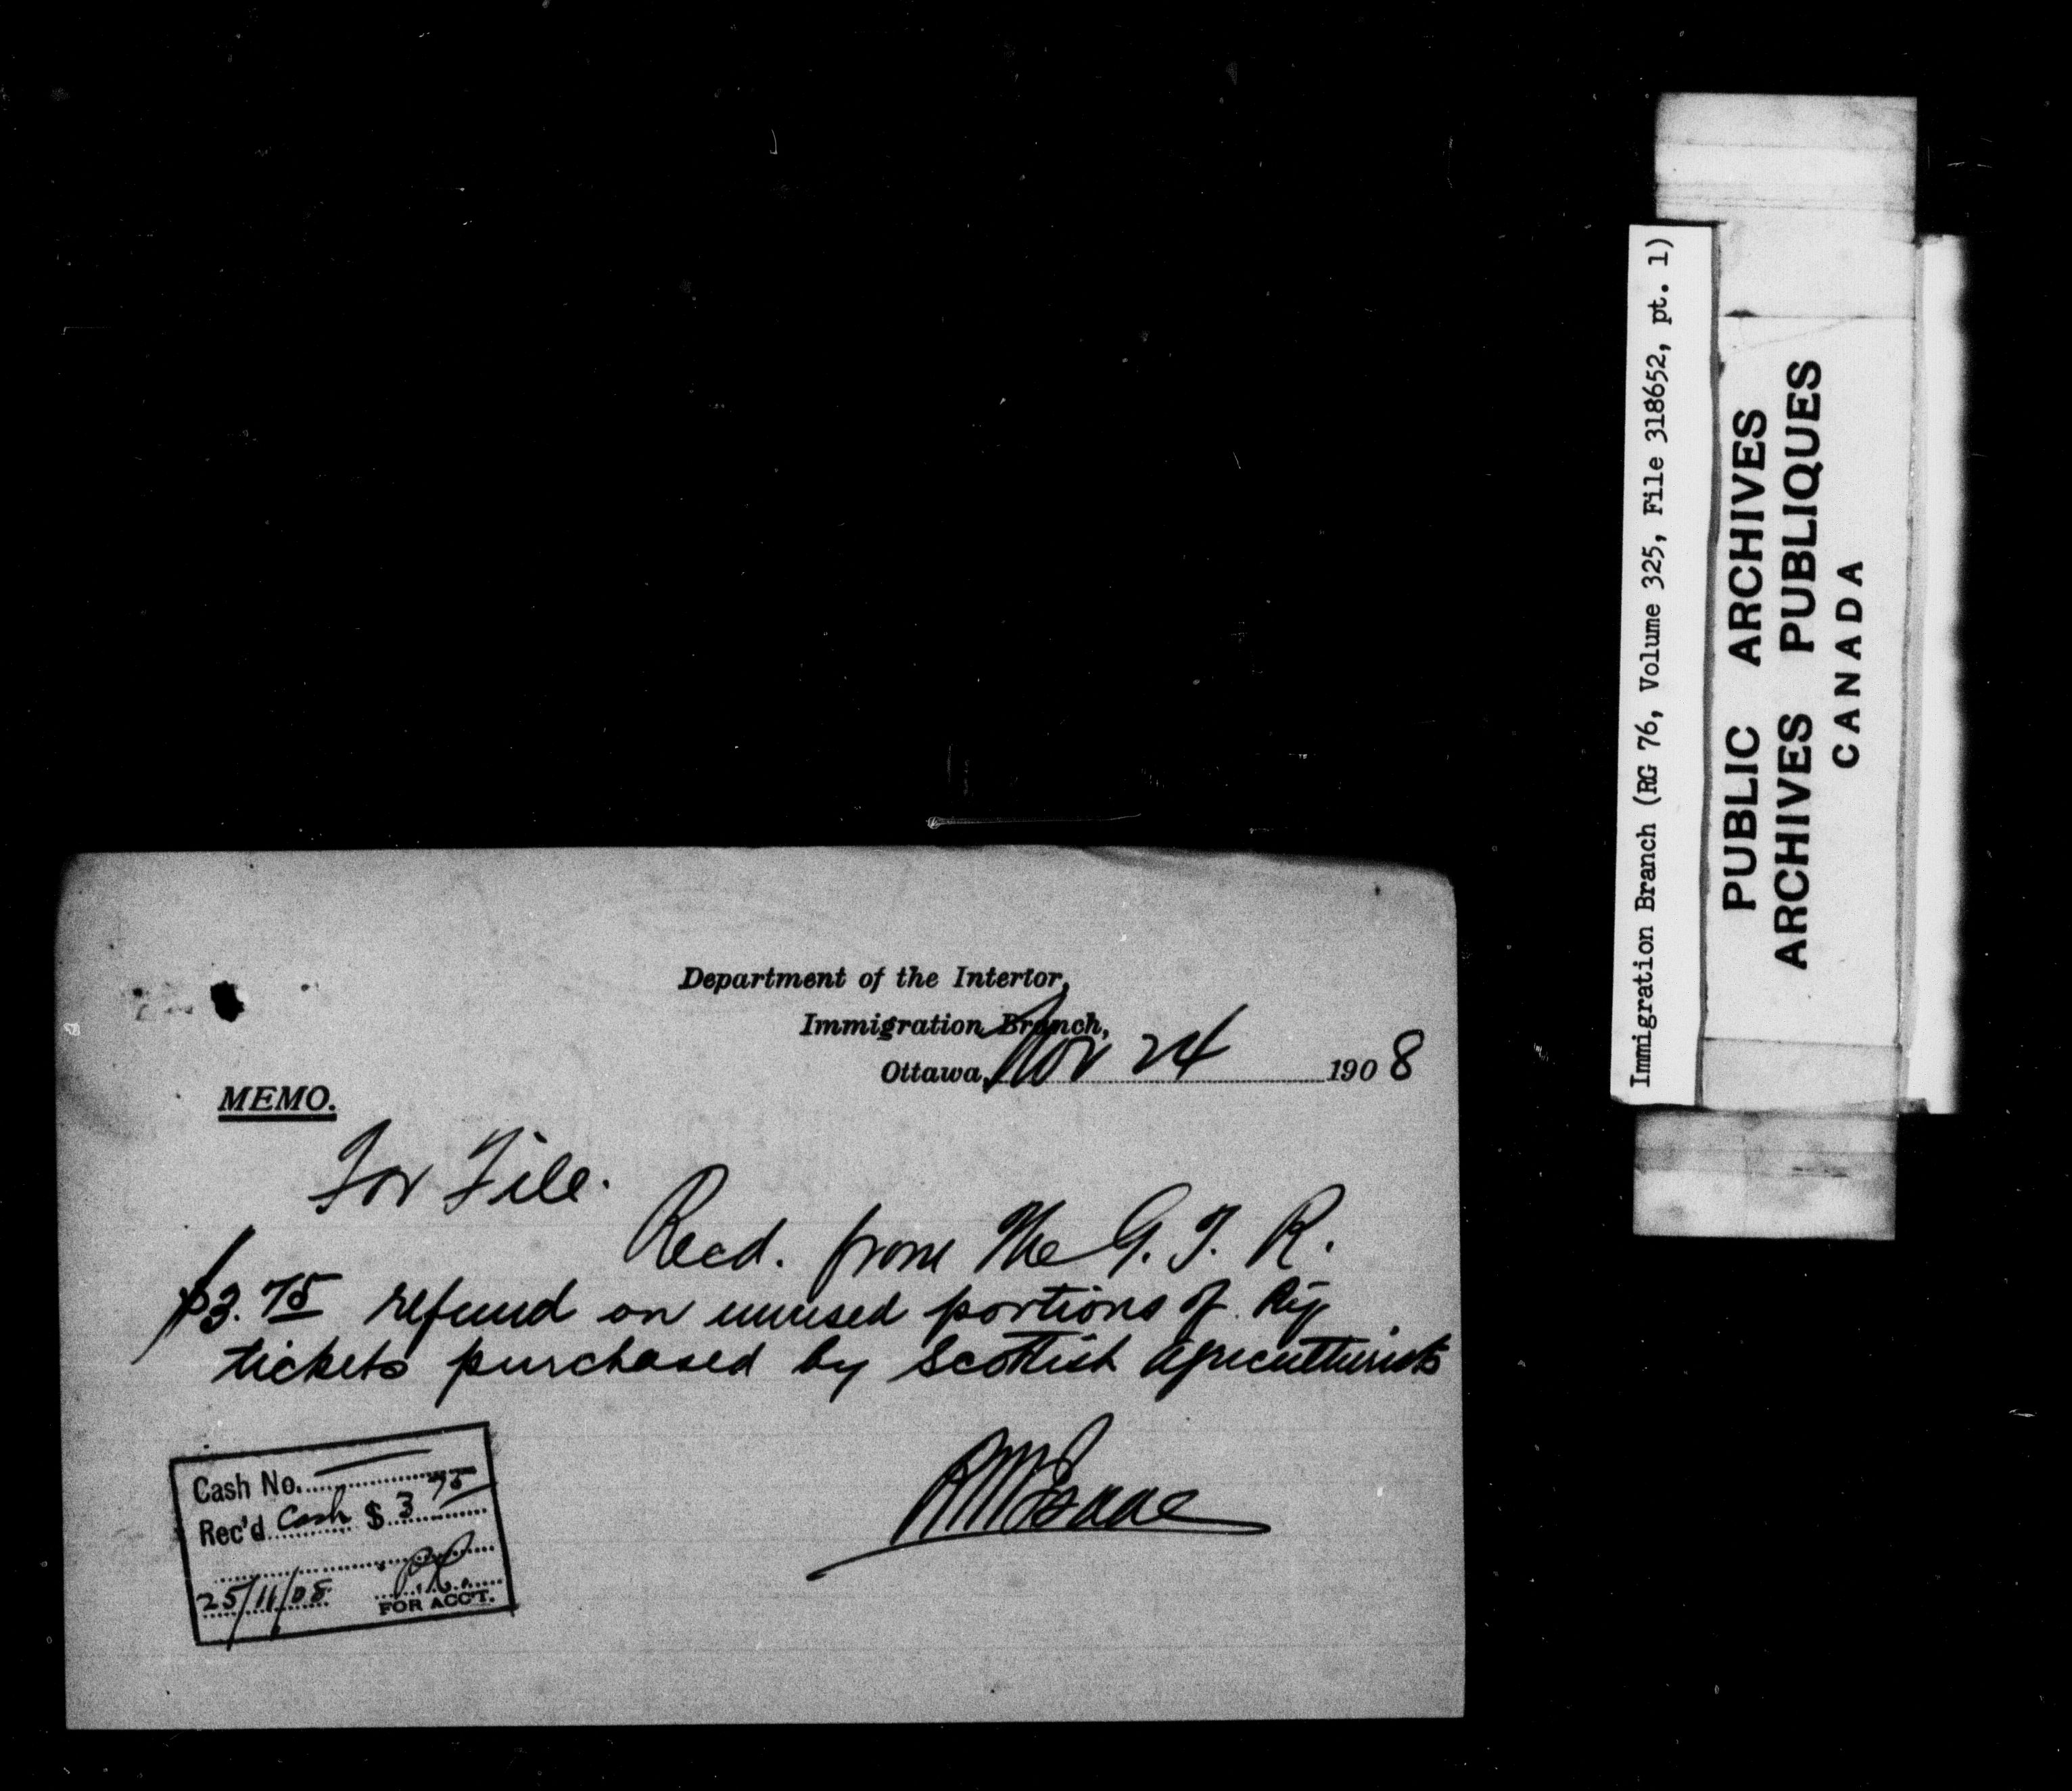 Department of the Interior,
Immigration Branch,
Ottawa, Nov 24 1908
MEMO.
For File.
Recd. from The G. T. R.
$3.75 refund on unused portions of Ry
tickets purchased by Scottish agriculturists
Cash No.
Rec'd Cash $ 3 75
25/11/08
FOR ACC'T.
Immigration Branch (RG 76, Volume 325, File 318652, pt. 1)
PUBLIC ARCHIVES
ARCHIVES PUBLIQUES
CANADA